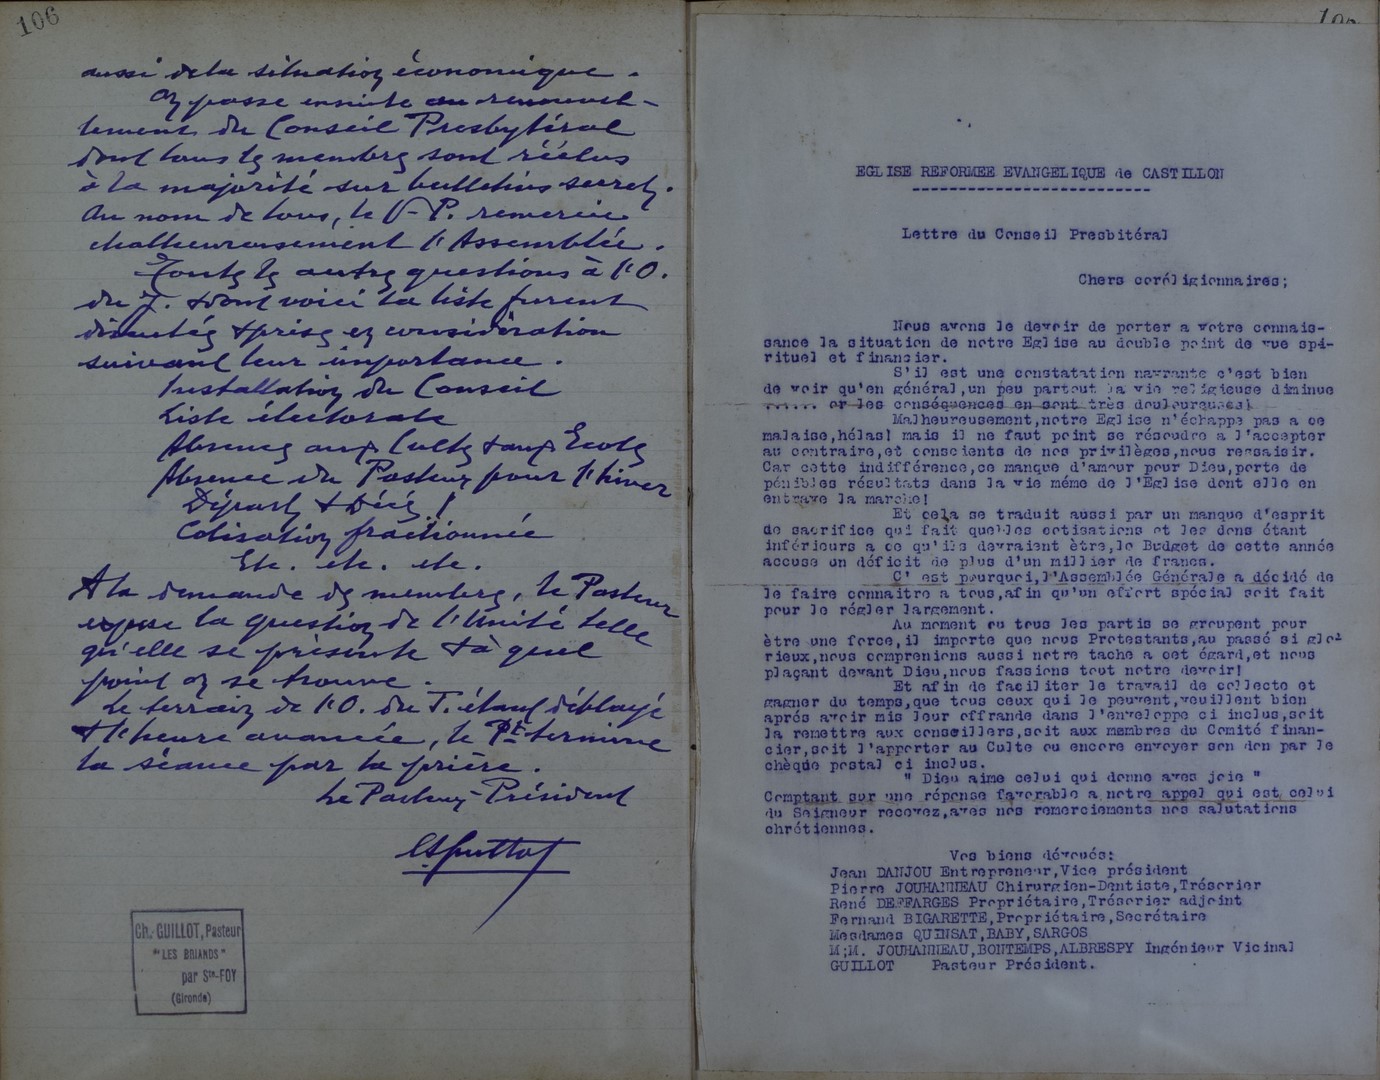 106
aussi de la situation économique.
On passe ensuite au renouvel-
lement du Conseil Presbytéral
dont tous les membres sont réélus
à la majorité sur bulletins secrets.
Au nom de tous, le V-P. remercie
chalheureusement l'Assemblée.
Toutes les autres questions à l'O.
du J. & dont voici la liste furent
discutées & prises en considération
suivant leur importance.
Installation du Conseil
Liste électorale
Absences aux Cultes & aux Ecoles
Absence du Pasteur pour l'hiver
Départs & Décès !
Cotisation fractionnée
Etc. etc. etc.
A la demande des membres, le Pasteur
expose la question de l'Unité telle
qu'elle se présente & à quel
point on se trouve.
Le terrain de l'O. du J. étant déblayé
& l'heure avancée, le Pt termine
la séance par la prière.
Le Pasteur-Président
Ch Guillot
Ch. GUILLOT, Pasteur
"LES BRIANDS"
par Ste-FOY
(Gironde)
EGLISE REFORMEE EVANGELIQUE de CASTILLON
Lettre du Conseil Presbitéral
Chers coréligionnaires;
Nous avons le devoir de porter a votre connais-
sance la situation de notre Eglise au double point de vue spi-
rituel et financier.
S'il est une constatation navrante c'est bien
de voir qu'en général,un peu partout la vie religieuse diminue
...... or les conséquences en sont très douloureuses!
Malheureusement,notre Eglise n'échappe pas a ce
malaise,hélas! mais il ne faut point se résoudre a l'accepter
au contraire,et conscients de nos privilèges,nous ressaisir.
Car cette indifférence,ce manque d'amour pour Dieu,porte de
pénibles résultats dans la vie méme de l'Église dont elle en
entrave la marche!
Et cela se traduit aussi par un manque d'esprit
de sacrifice qui fait que les cotisations et les dons étant
inférieurs a ce qu'ils devraient ètre,le Budget de cette année
accuse un déficit de plus d'un millier de francs.
C' est pourquoi,l'Assemblée Générale a décidé de
le faire connaitre a tous,afin qu'un effort spécial soit fait
pour le régler largement.
Au moment ou tous les partis se groupent pour
ètre une force,il importe que nous Protestants,au passé si glo-
rieux,nous comprenions aussi notre tache a cet égard,et nous
plaçant devant Dieu,nous fassions tout notre devoir!
Et afin de faciliter le travail de collecte et
gagner du temps,que tous ceux qui le peuvent,veuillent bien
aprés avoir mis leur offrande dans l'enveloppe ci inclus,soit
la remettre aux conseillers,soit aux membres du Comité finan-
cier,soit l'apporter au Culte ou encore envoyer son don par le
chèque postal ci inclus.
" Dieu aime celui qui donne aves joie "
Comptant sur une réponse favorable a notre appel qui est celui
du Seigneur recevez,aves nos remerciements nos salutations
chrétiennes.
Vos biens dévoués:
Jean DANJOU Entrepreneur,Vice président
Pierre JOUHANNEAU Chirurgien-Dentiste,Trésorier
René DEFFARGES Propriétaire,Trésorier adjoint
Fernand BIGARETTE,Propriétaire,Secrétaire
Mesdames QUINSAT,BABY,SARGOS
M;M. JOUHANNEAU,BONTEMPS,ALBRESPY Ingénieur Vicinal
GUILLOT Pasteur Président.